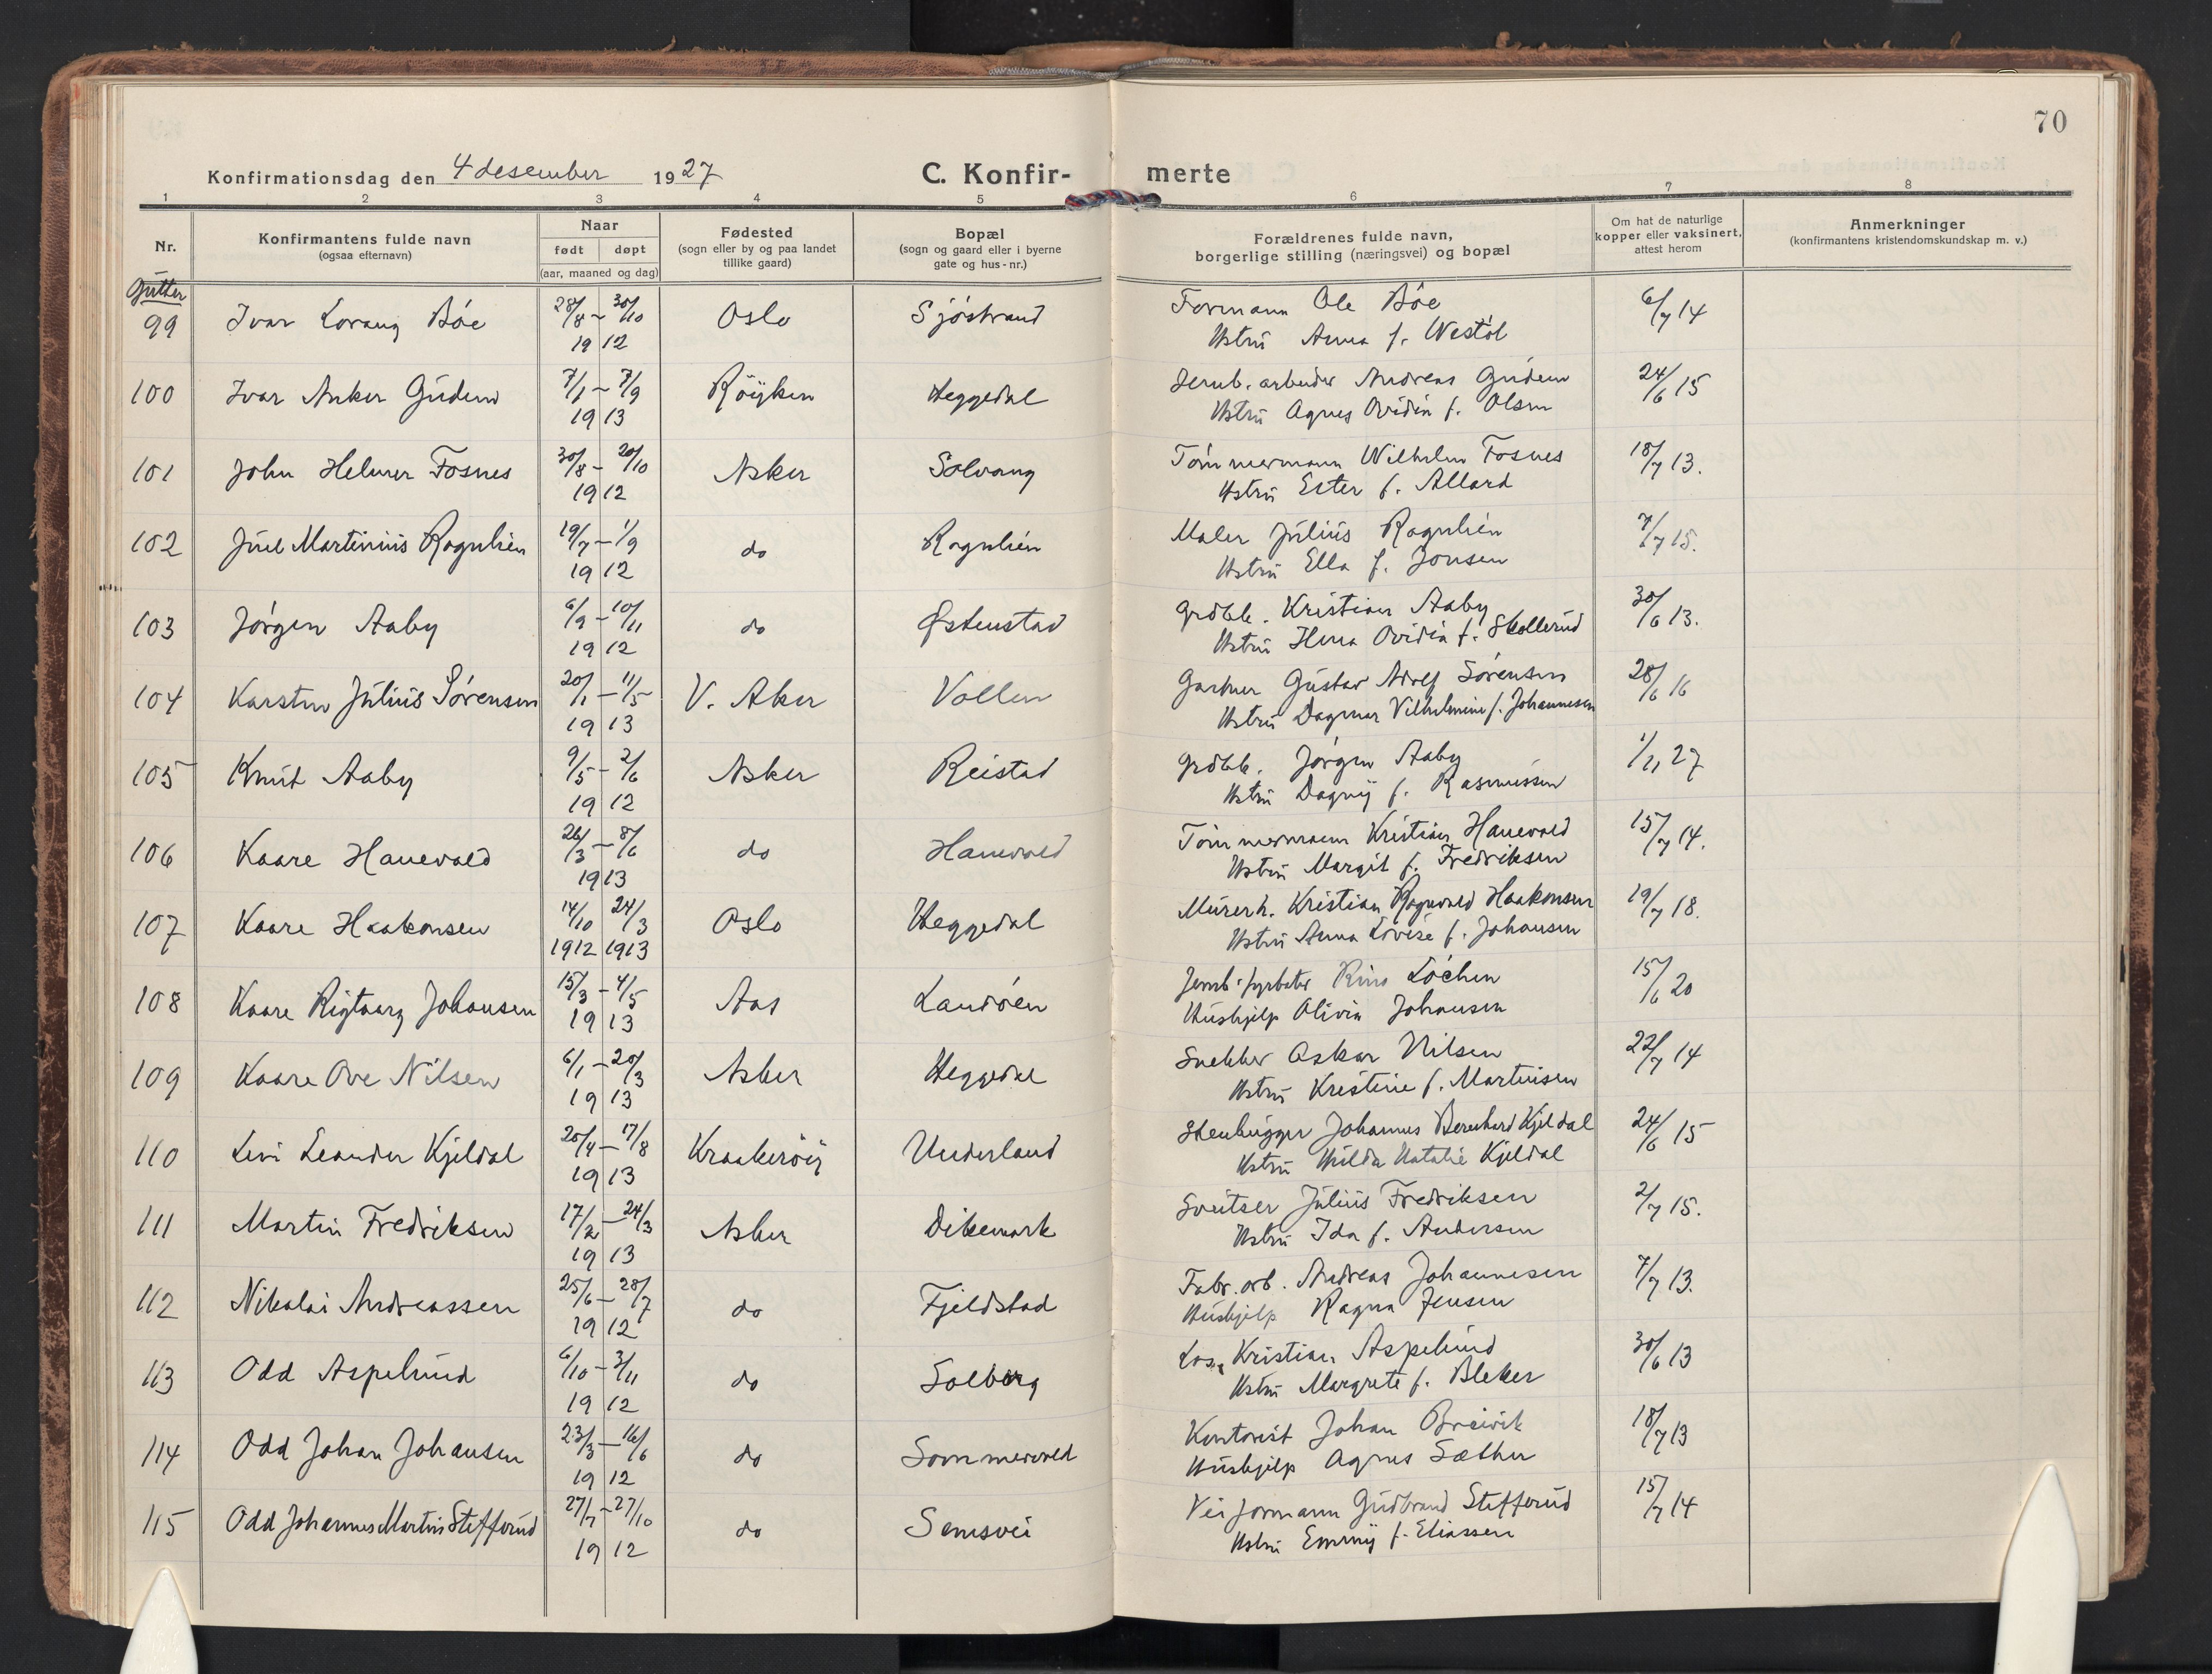 70
Konfirmationsdag den 4 desember 1927 C. Konfir- merte
1 2 3 4 5 6 7 8
Nr. Konfirmantens fulde navn (ogsaa efternavn) Naar født døpt (aar, maaned og dag) Fødested (sogn eller by og paa landet tillike gaard) Bopæl (sogn og gaard eller i byerne gate og hus-nr.) Forældrenes fulde navn, borgerlige stilling (næringsvei) og bopæl Om hat de naturlige kopper eller vaksinert, attest herom Anmerkninger (konfirmantens kristendomskundskap m. v.)
Gutter
99 Ivar Lorang Bóe 28/8 - 30/10 Oslo Sjóstrand Formann Ole Bóe 6/7 14
1912 Hstrü Anna f. Westöl
100 Ivar Anker Gudem 7/1 - 7/9 Röyken Heggedal Jernb. arbeider Andreas Gudem 24/6 15
1913 Hstrü Agnes Ovidia f. Olsen
101 John Helmer Fosnes 30/8 - 20/10 Asker Solvang Tómmermann Wilhelm Fosnes 18/7 13.
1912 Hstrü Ester f. Allard
102 Juel Martinius Rognlien 19/7 - 1/9 do Rognlien Maler Julius Rognlien 7/7 15.
1912 Hstrü Ella f. Jonsen
103 Jórgen Aaby 6/9 - 10/11 do Østenstad Grdbb. Kristian Aaby 30/6 13.
1912 Hstrü Ovidia f. Skollerud
104 Karsten Julius Sórensen 20/1 - 11/5 V. Aker Vollen Gartner Gustav Adolf Sórensen 28/6 16
1913 Hstrü Dagmar Vilhelmine f. Johannesen
105 Knut Aaby 9/5 - 2/6 Asker Reistad Grdbb. Jórgen Aaby 1/11 27
1912 Hstrü Dagny f. Rasmussen
106 Kaare Hanevold 26/3 - 8/6 do Hanevold Tómmermann Kristian Hanevold 15/7 14.
1913 Hstrü Margit f. Fredriksen
107 Kaare Haakonsen 14/10 24/3 Oslo Heggedal Murerh. Kristian Ragnvald Haakonsen 19/7 18.
1912 1913 Hstrü Anna Lovise f. Johansen
108 Kaare Johansen 15/3 - 4/5 Aas Landóen Jernb. fyrbøter Lóchen 15/6 20
1913 Hushjelp Olivia Johansen
109 Kaare Ove Nilsen 6/1 - 20/3 Asker Heggedal Snekker Oskar Nilsen 22/7 14
1913 Hstrü Kristine f. Martinsen
110 Levi Leander Kjeldal 20/4 - 17/8 Kraakeröy Underland Stenhugger Johannes Bernhard Kjeldal 24/6 15
1913 Hstrü Hulda Natalie Kjeldal
111 Martin Fredriksen 17/2 - 24/3 Asker Dikemark Sveitser Julius Fredriksen 2/7 15.
1913 Hstrü Ida f. Andersen
112 Nikolai Andreassen 25/6 - 28/7 do Fjeldstad Fabr. arb. Andreas Johannesen 7/7 13.
1912 Hushjelp Ragna Jensen
113 Odd Aspelund 6/10 - 3/11 do Solberg Kristian Aspelund 30/6 13
1912 Hstrü Margrete f. Bleker
114 Odd Johan Johansen 23/3 - 16/6 do Sommervold Kontorist Johan Breivik 18/7 13
1912 Hushjelp Agnes Sæther
115 Odd Johannes Martin Stefferud 27/7 - 27/10 do Semsvei Veiformann Gudbrand Stefferud 15/7 14
1912 Hstrü Emmy f. Eliassen